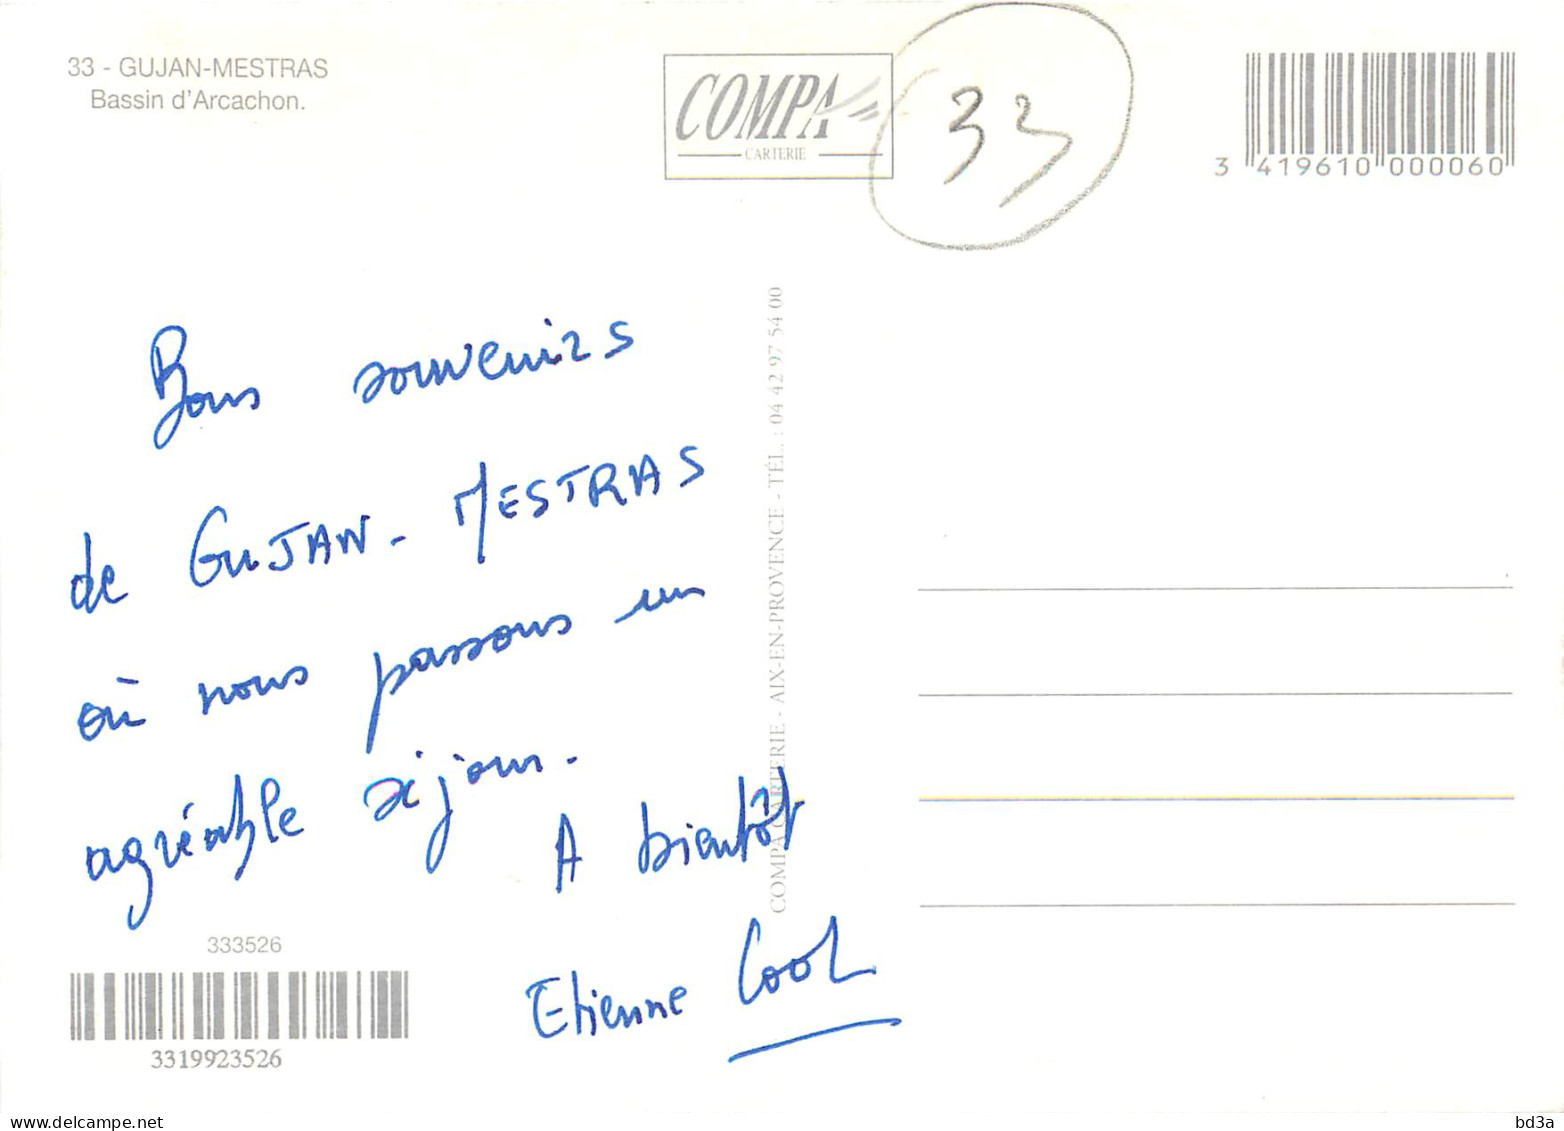 33 - GUJAN-MESTRAS
Bassin d'Arcachon.
COMPA
CARTERIE
33
3 419610 000060
Bons souvenirs
de GUJAN-MESTRAS
où nous passons un
agréable séjour.
A bientôt
Etienne Cool
COMPA CARTERIE - AIX-EN-PROVENCE - TÉL. : 04 42 97 54 00
333526
3319923526
delcampe.net
bd3a